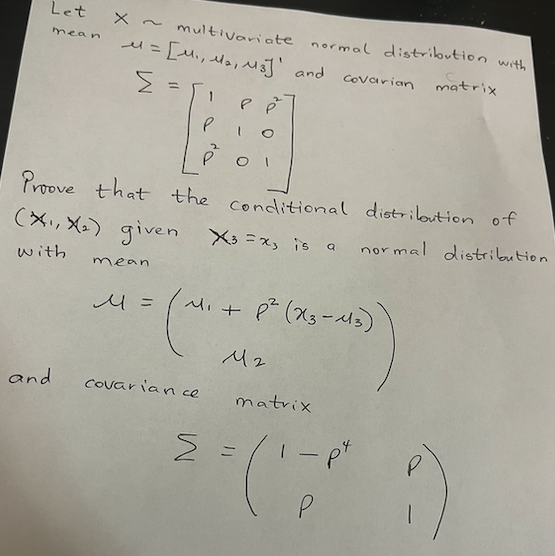 Let X ~ multivariate normal distribution with
mean μ = [μ₁, μ₂, μ₃]' and covarian matrix
Σ = [1 ρ ρ²
ρ 1 0
ρ² 0 1]
Proove that the conditional distribution of
(X₁, X₂) given X₃ = x₃ is a normal distribution
with mean
μ = (μ₁ + ρ² (x₃ - μ₃)
μ₂)
and covariance matrix
Σ = (1 - ρ⁴ ρ
ρ 1)